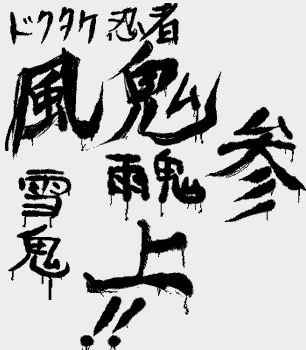 ドクタケ忍者
風鬼
雨鬼
雪鬼
参上!!